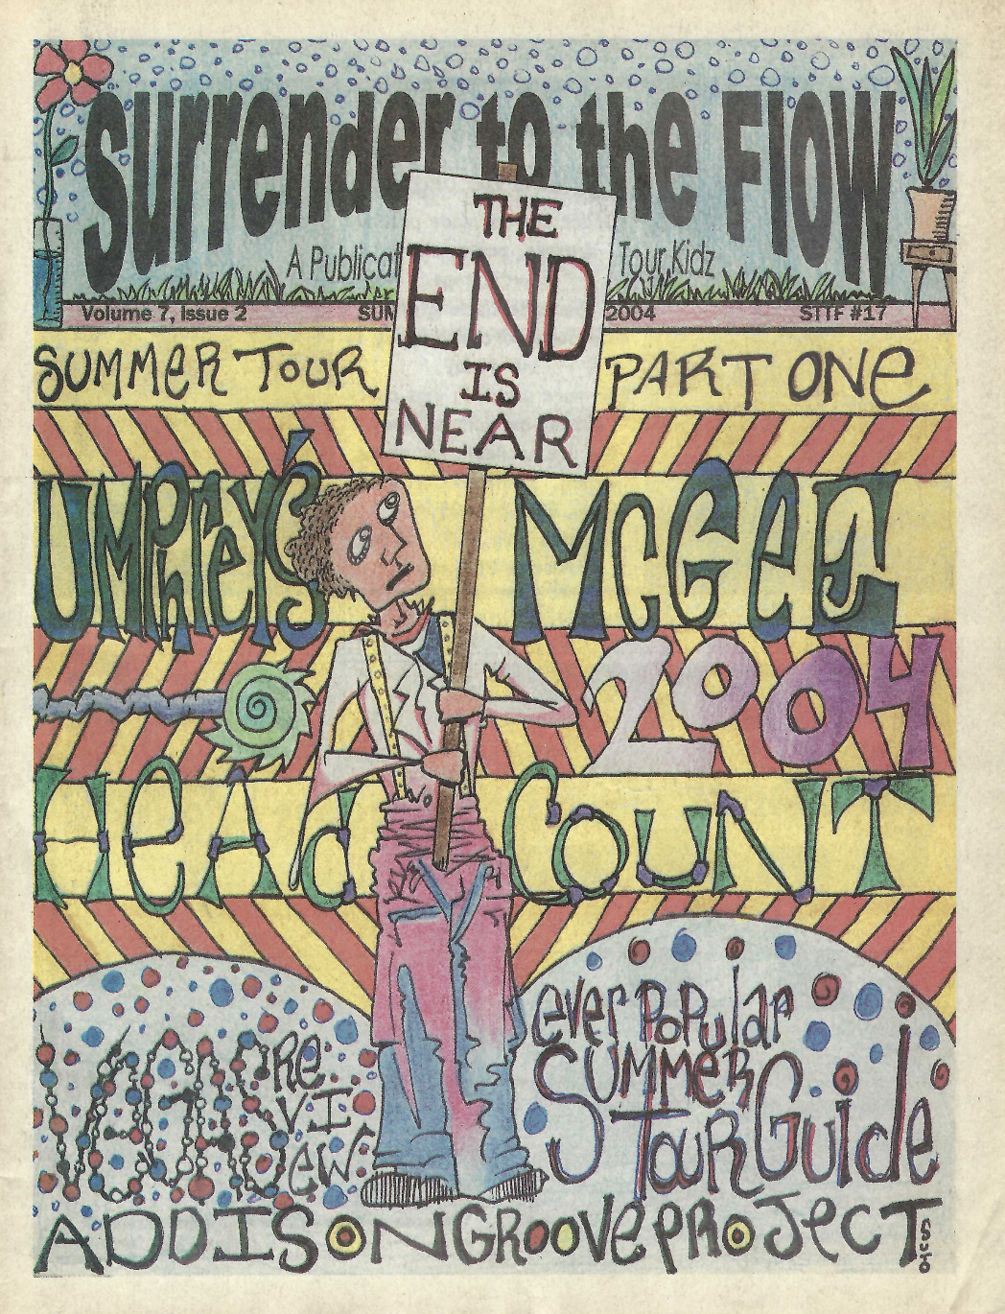 Surrender to the Flow
A Publicat Tour Kidz
Volume 7, Issue 2 SUM 2004 STTF #17
THE
END
IS
NEAR
SUMMER TOUR PART ONE
UMPHREY'S McGEE
2004
HEAD COUNT
Re
VI
ew
ever Popular
SUMMER
Tour Guide
ADDISON Groove ProJecT